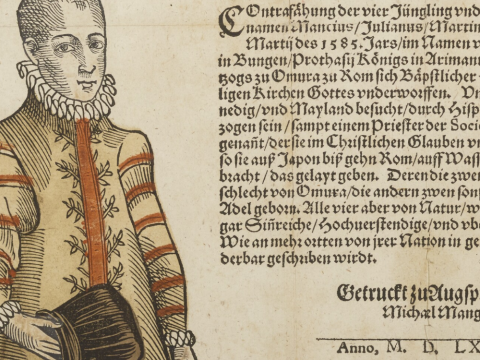 Contrafähung der vier Jüngling vnd
namen Mancius/Julianus/Martin
Martij des 1585. Jars/im Namen v
in Bungen/Prothasij Königs in Arimam
tzogs zu Omura zu Rom sich Bäpstlicher
ligen Kirchen Gottes vnderworffen. Vn
nedig/vnd Mayland besucht/durch Hisp
zogen sein/sampt einem Priester der Socie
genañt/der sie im Christlichen Glauben vn
so sie auß Japon biß gehn Rom/auff Wass
bracht/das gelayt geben. Deren die zwen
schlecht von Omura/die andern zwen sons
Adel geborn. Alle vier aber von Natur/w
gar Siñreiche/Hochuerstendige/vnd vb
Wie an mehr ortten von jrer Nation in ge
derbar geschriben wirdt.
Getruckt zu Augsp
Michael Mang
Anno, M. D. LX